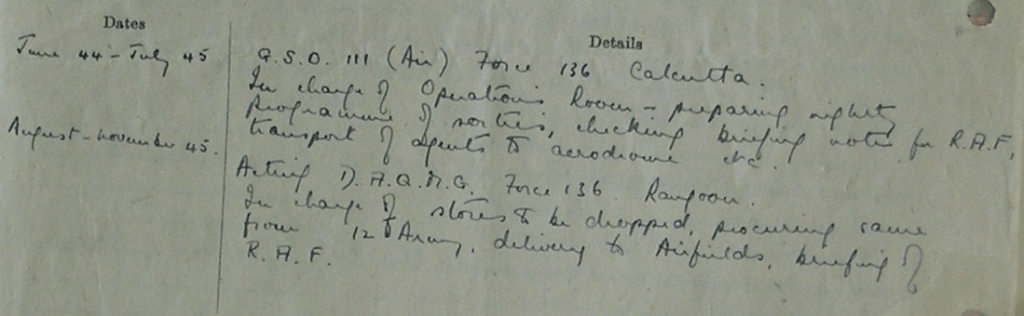 Dates
Details
June 44 - July 45
G.S.O. III (Air) Force 136 Calcutta.
In charge of Operations Room - preparing nightly
programme of sorties, checking briefing notes for R.A.F,
transport of agents to aerodrome etc.
August - November 45.
Acting D.A.Q.M.G. Force 136 Rangoon.
In charge of stores to be dropped, procuring same
from 12 Army, delivery to Airfields, briefing of
R.A.F.